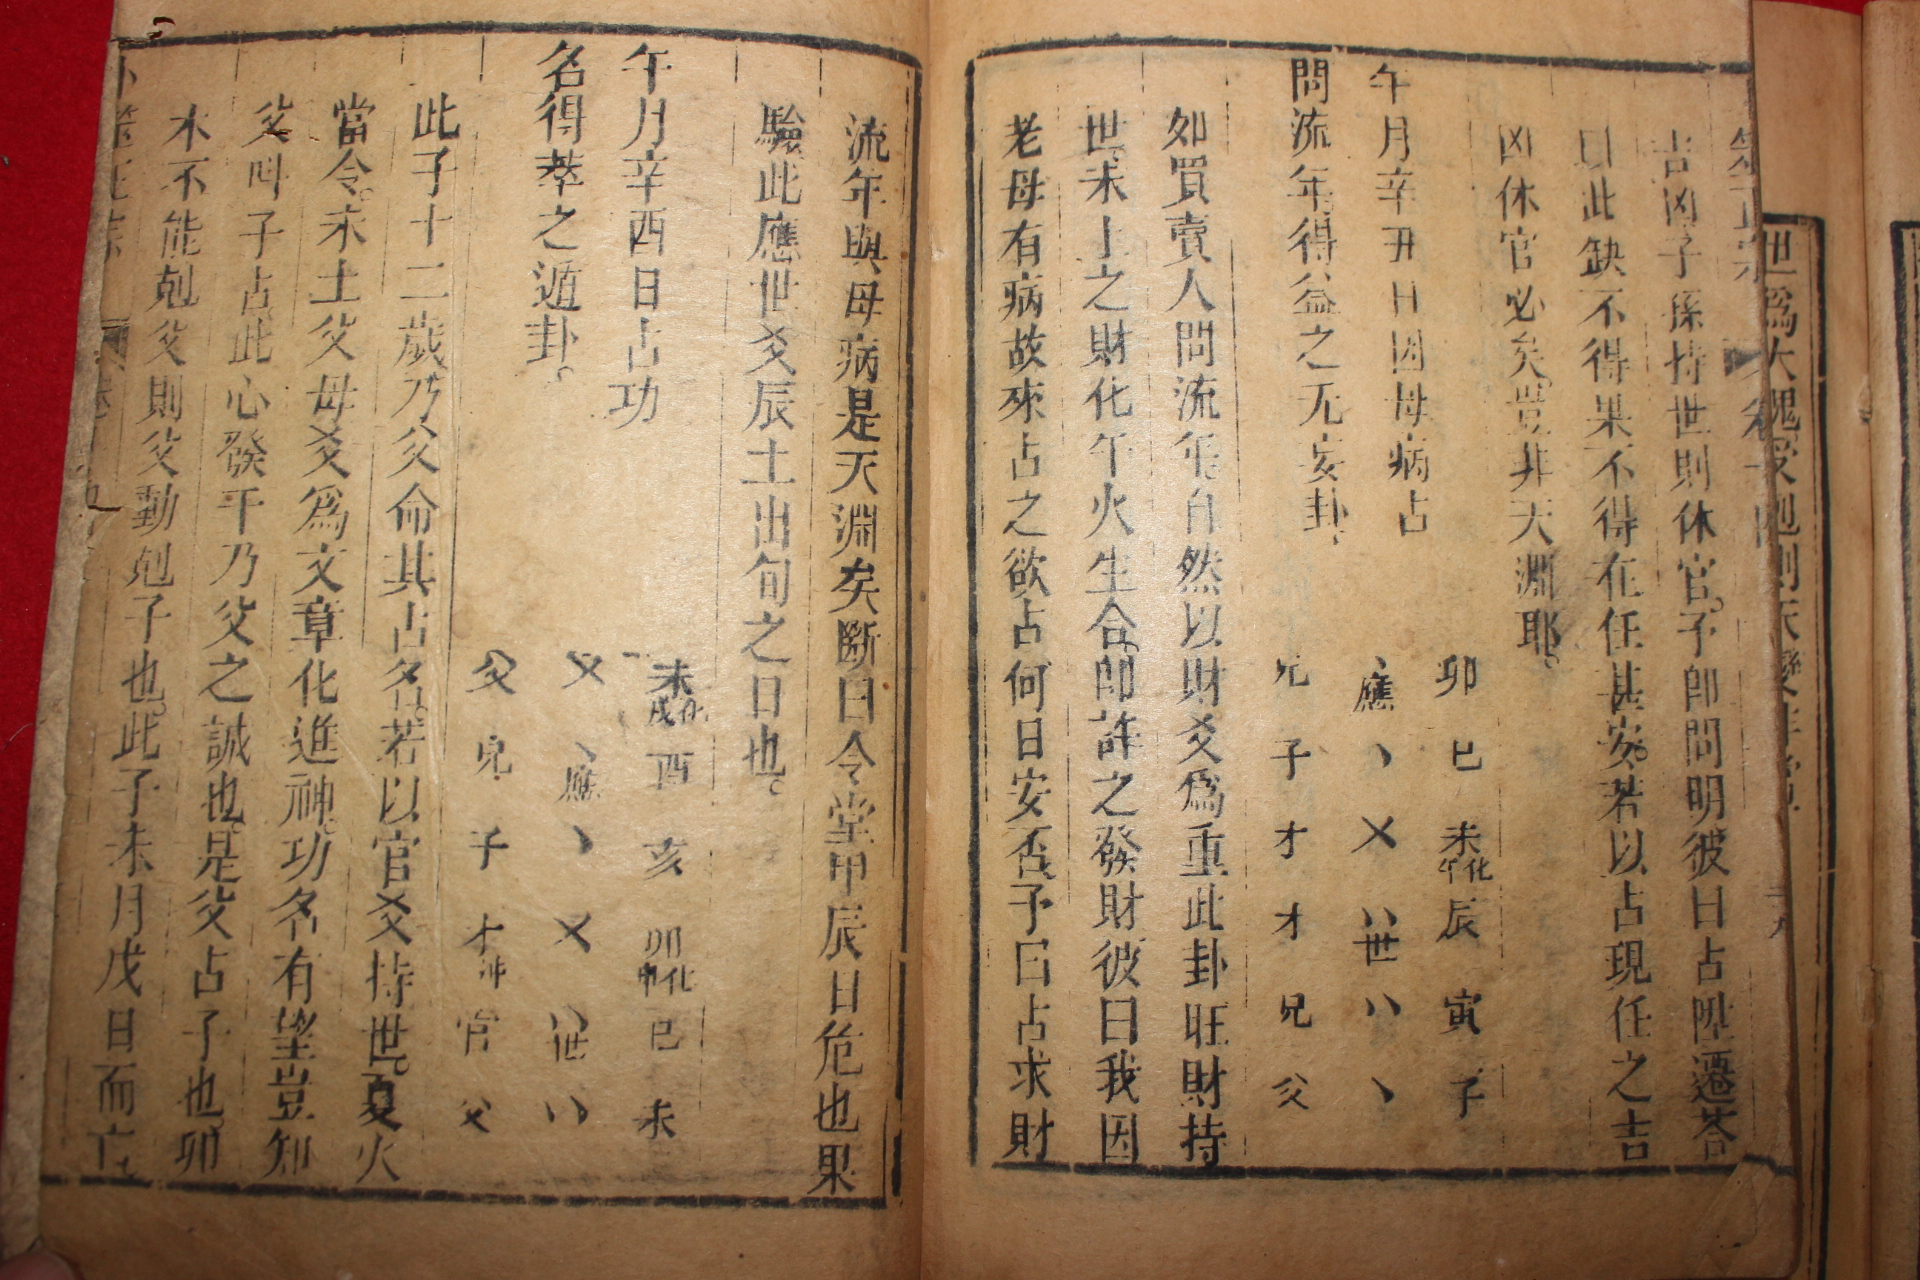 世爲大
吉凶子孫持世則休官子卽問明彼曰占陞遷答
以此缺不得果不得在任甚安若以占現任之吉
凶休官必矣豈非天淵耶
午月辛丑日因母病占
問流年得益之无妄卦
卯 巳 未化午 辰 寅 子
、應 、 乂 八世 八 、
兄 子 才 才 兄 父
如買賣人問流年自然以財爻爲重此卦旺財持
世未土之財化午火生合卽許之發財彼曰我因
老母有病故來占之欲占何日安否予曰占求財
流年與母病是天淵矣斷曰令堂甲辰日危也果
驗此應世爻辰土出旬之日也
午月辛酉日占功
名得萃之遁卦
未化戌 酉 亥 卯化申 巳 未
乂 、應 、 乂 八世 八
父 兄 子 才 官 父
此子十二歲乃父命其占名若以官爻持世夏火
當令未土父母爻爲文章化進神功名有望豈知
父叫子占此心發于乃父之誠也是父占子也卯
木不能剋父則父動剋子也此子未月戊日而亡